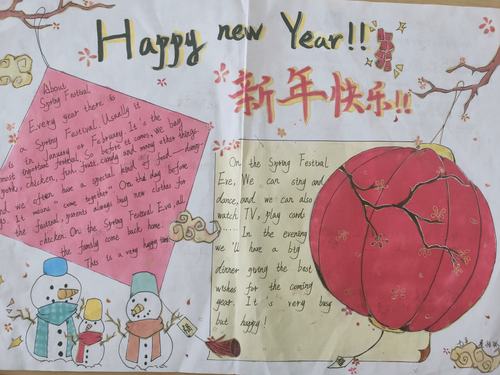 Happy new Year!!
新年快乐!!
About
Spring Festival
Every year there is
a Spring Festival. Usually is
in January or February. It's the
most important festival. So before it comes, we buy
pork, chicken, fish, fruits, candy and many other things.
and we often have a special kind of food
It means "come together". On the day before
the festival, parents always buy new clothes for
children. On the Spring Festival Eve, all
the family come back home.
This is a very happy
On the Spring Festival
Eve, We can sing and
dance, and we can also
watch TV, play cards
...... In the evening
we'll have a big
dinner giving the best
wishes for the coming
year. It is very busy
but happy!